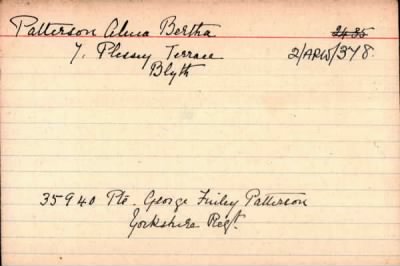 Patterson Alma Bertha
7, Plessey Terrace
Blyth
2/ARW/378.
35940 Pte. George Finley Patterson
Yorkshire Regt.